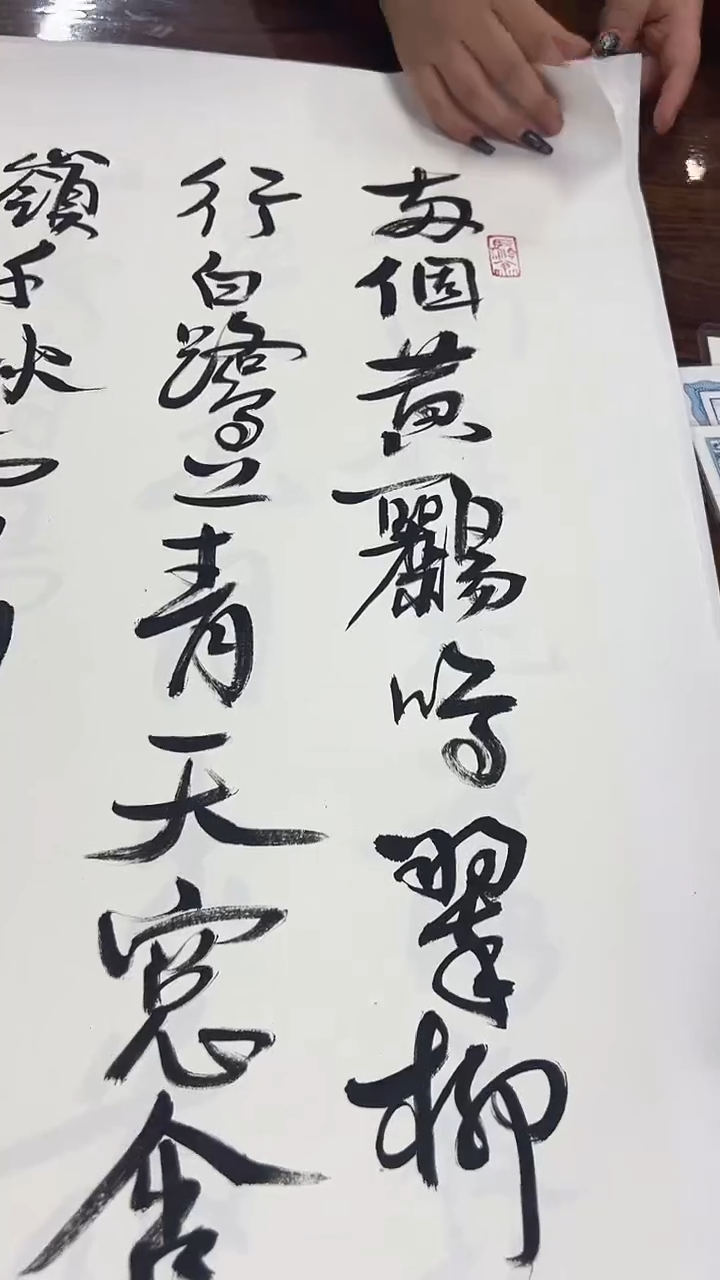 兩個黃鸝鳴翠柳
行白鷺上青天窓含
嶺千秋